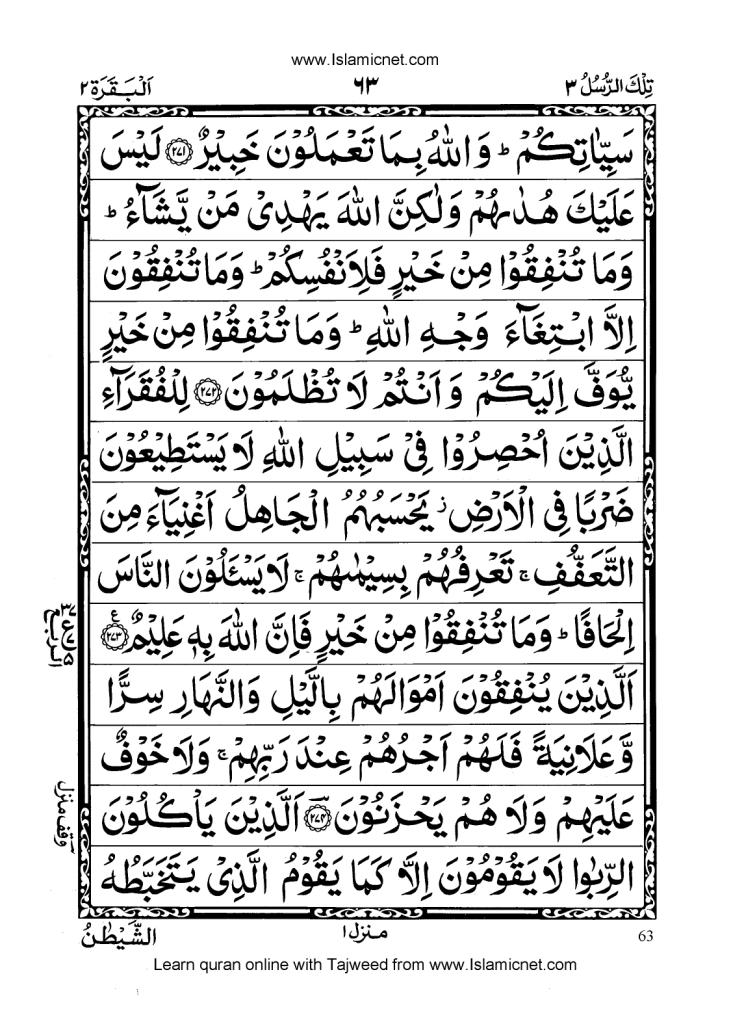 www.Islamicnet.com
تِلْكَ الرُّسُلُ ٣ ٦٣ اَلْبَقَرَة ٢
سَيِّاٰتِكُمْ ؕ وَاللّٰهُ بِمَا تَعْمَلُوْنَ خَبِيْرٌ ﴿۲۷۱﴾ لَيْسَ
عَلَيْكَ هُدٰىهُمْ وَلٰكِنَّ اللّٰهَ يَهْدِىْ مَنْ يَّشَآءُ ؕ
وَمَا تُنْفِقُوْا مِنْ خَيْرٍ فَلِاَنْفُسِكُمْ ؕ وَمَا تُنْفِقُوْنَ
اِلَّا ابْتِغَآءَ وَجْهِ اللّٰهِ ؕ وَمَا تُنْفِقُوْا مِنْ خَيْرٍ
يُّوَفَّ اِلَيْكُمْ وَاَنْتُمْ لَا تُظْلَمُوْنَ ﴿۲۷۲﴾ لِلْفُقَرَآءِ
الَّذِيْنَ اُحْصِرُوْا فِىْ سَبِيْلِ اللّٰهِ لَا يَسْتَطِيْعُوْنَ
ضَرْبًا فِى الْاَرْضِ ز يَحْسَبُهُمُ الْجَاهِلُ اَغْنِيَآءَ مِنَ
التَّعَفُّفِ ۚ تَعْرِفُهُمْ بِسِيْمٰهُمْ ۚ لَا يَسْـَٔلُوْنَ النَّاسَ
اِلْحَافًا ؕ وَمَا تُنْفِقُوْا مِنْ خَيْرٍ فَاِنَّ اللّٰهَ بِهٖ عَلِيْمٌ ﴿۲۷۳﴾ ع
اَلَّذِيْنَ يُنْفِقُوْنَ اَمْوَالَهُمْ بِالَّيْلِ وَالنَّهَارِ سِرًّا
وَّعَلَانِيَةً فَلَهُمْ اَجْرُهُمْ عِنْدَ رَبِّهِمْ ۚ وَلَا خَوْفٌ
عَلَيْهِمْ وَلَا هُمْ يَحْزَنُوْنَ ﴿۲۷۴﴾ اَلَّذِيْنَ يَاْكُلُوْنَ
الرِّبٰوا لَا يَقُوْمُوْنَ اِلَّا كَمَا يَقُوْمُ الَّذِىْ يَتَخَبَّطُهُ
الربع
وقف منزل
الشَّيْطٰنُ
منزل ١
63
Learn quran online with Tajweed from www.Islamicnet.com